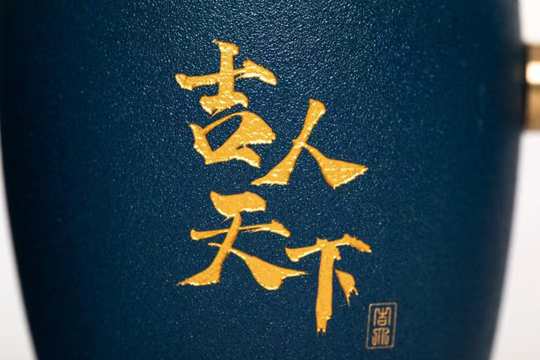 吉人
天下